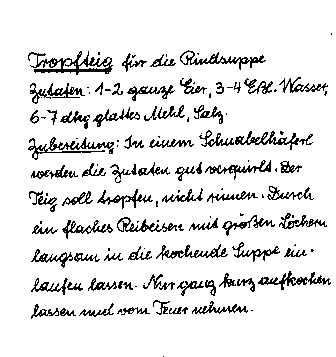 Tropfteig für die Rindsuppe
Zutaten: 1-2 ganze Eier, 3-4 Eßl. Wasser,
6-7 dkg glattes Mehl, Salz.
Zubereitung: In einem Schnabelhäferl
werden die Zutaten gut verquirlt. Der
Teig soll tropfen, nicht rinnen. Durch
ein flaches Reibeisen mit großen Löchern
langsam in die kochende Suppe ein-
laufen lassen. Nur ganz kurz aufkochen
lassen und vom Feuer nehmen.